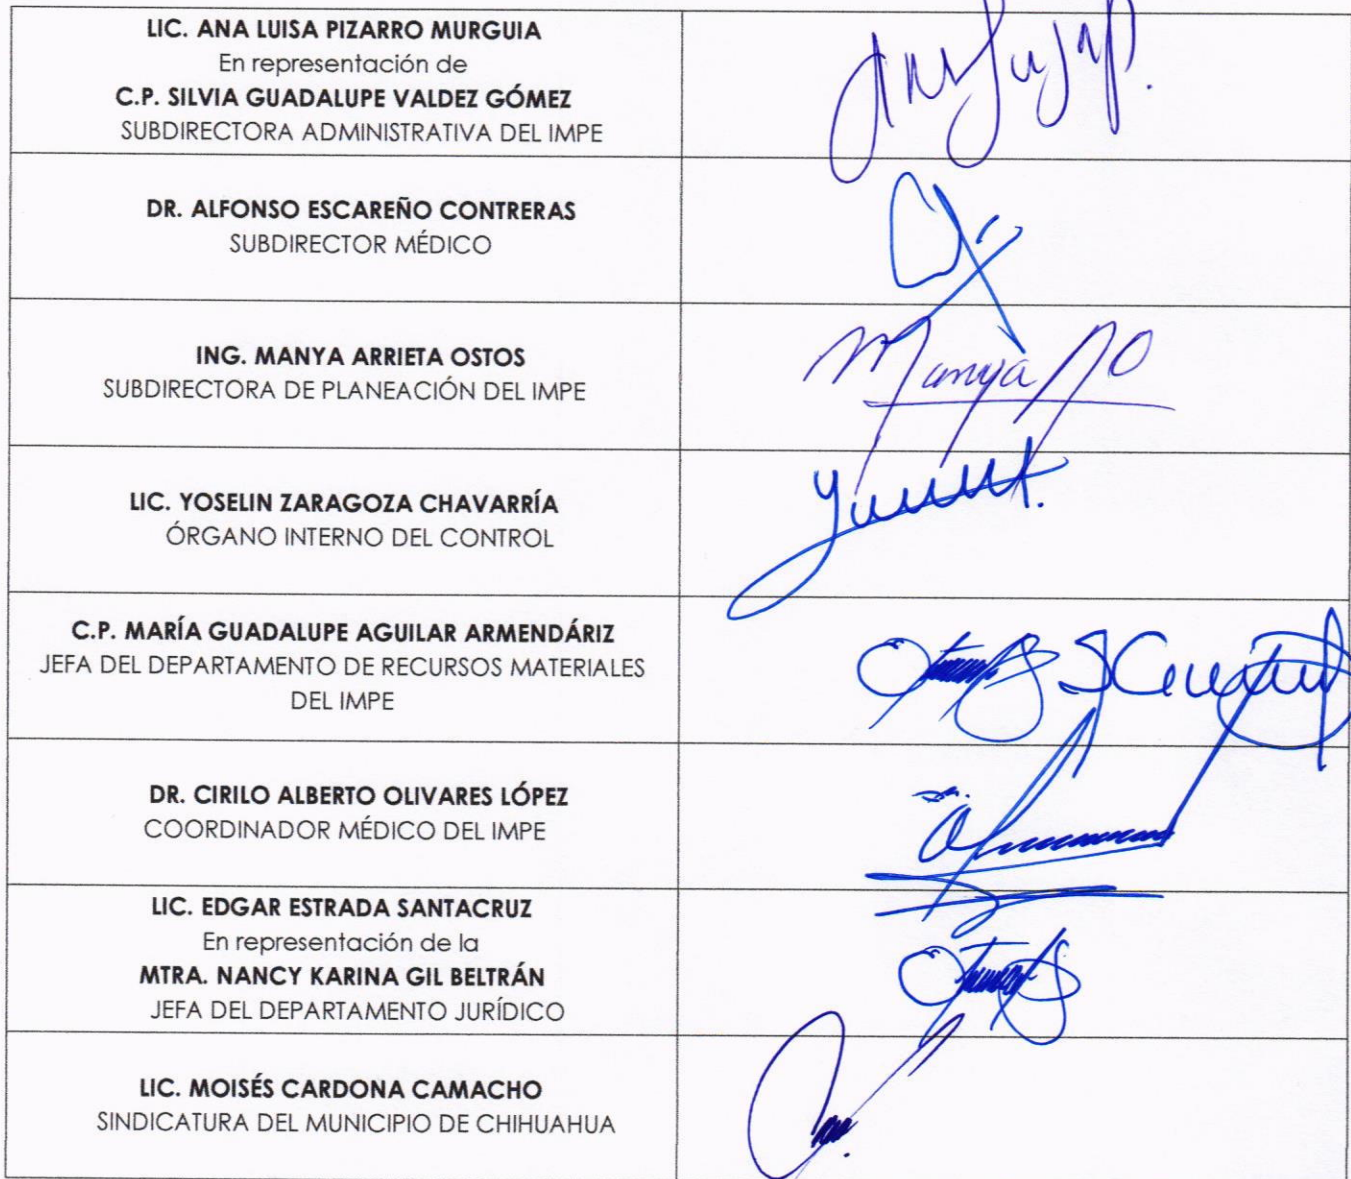 LIC. ANA LUISA PIZARRO MURGUIA
En representación de
C.P. SILVIA GUADALUPE VALDEZ GÓMEZ
SUBDIRECTORA ADMINISTRATIVA DEL IMPE
DR. ALFONSO ESCAREÑO CONTRERAS
SUBDIRECTOR MÉDICO
ING. MANYA ARRIETA OSTOS
SUBDIRECTORA DE PLANEACIÓN DEL IMPE
Manya AO
LIC. YOSELIN ZARAGOZA CHAVARRÍA
ÓRGANO INTERNO DEL CONTROL
C.P. MARÍA GUADALUPE AGUILAR ARMENDÁRIZ
JEFA DEL DEPARTAMENTO DE RECURSOS MATERIALES
DEL IMPE
DR. CIRILO ALBERTO OLIVARES LÓPEZ
COORDINADOR MÉDICO DEL IMPE
LIC. EDGAR ESTRADA SANTACRUZ
En representación de la
MTRA. NANCY KARINA GIL BELTRÁN
JEFA DEL DEPARTAMENTO JURÍDICO
LIC. MOISÉS CARDONA CAMACHO
SINDICATURA DEL MUNICIPIO DE CHIHUAHUA